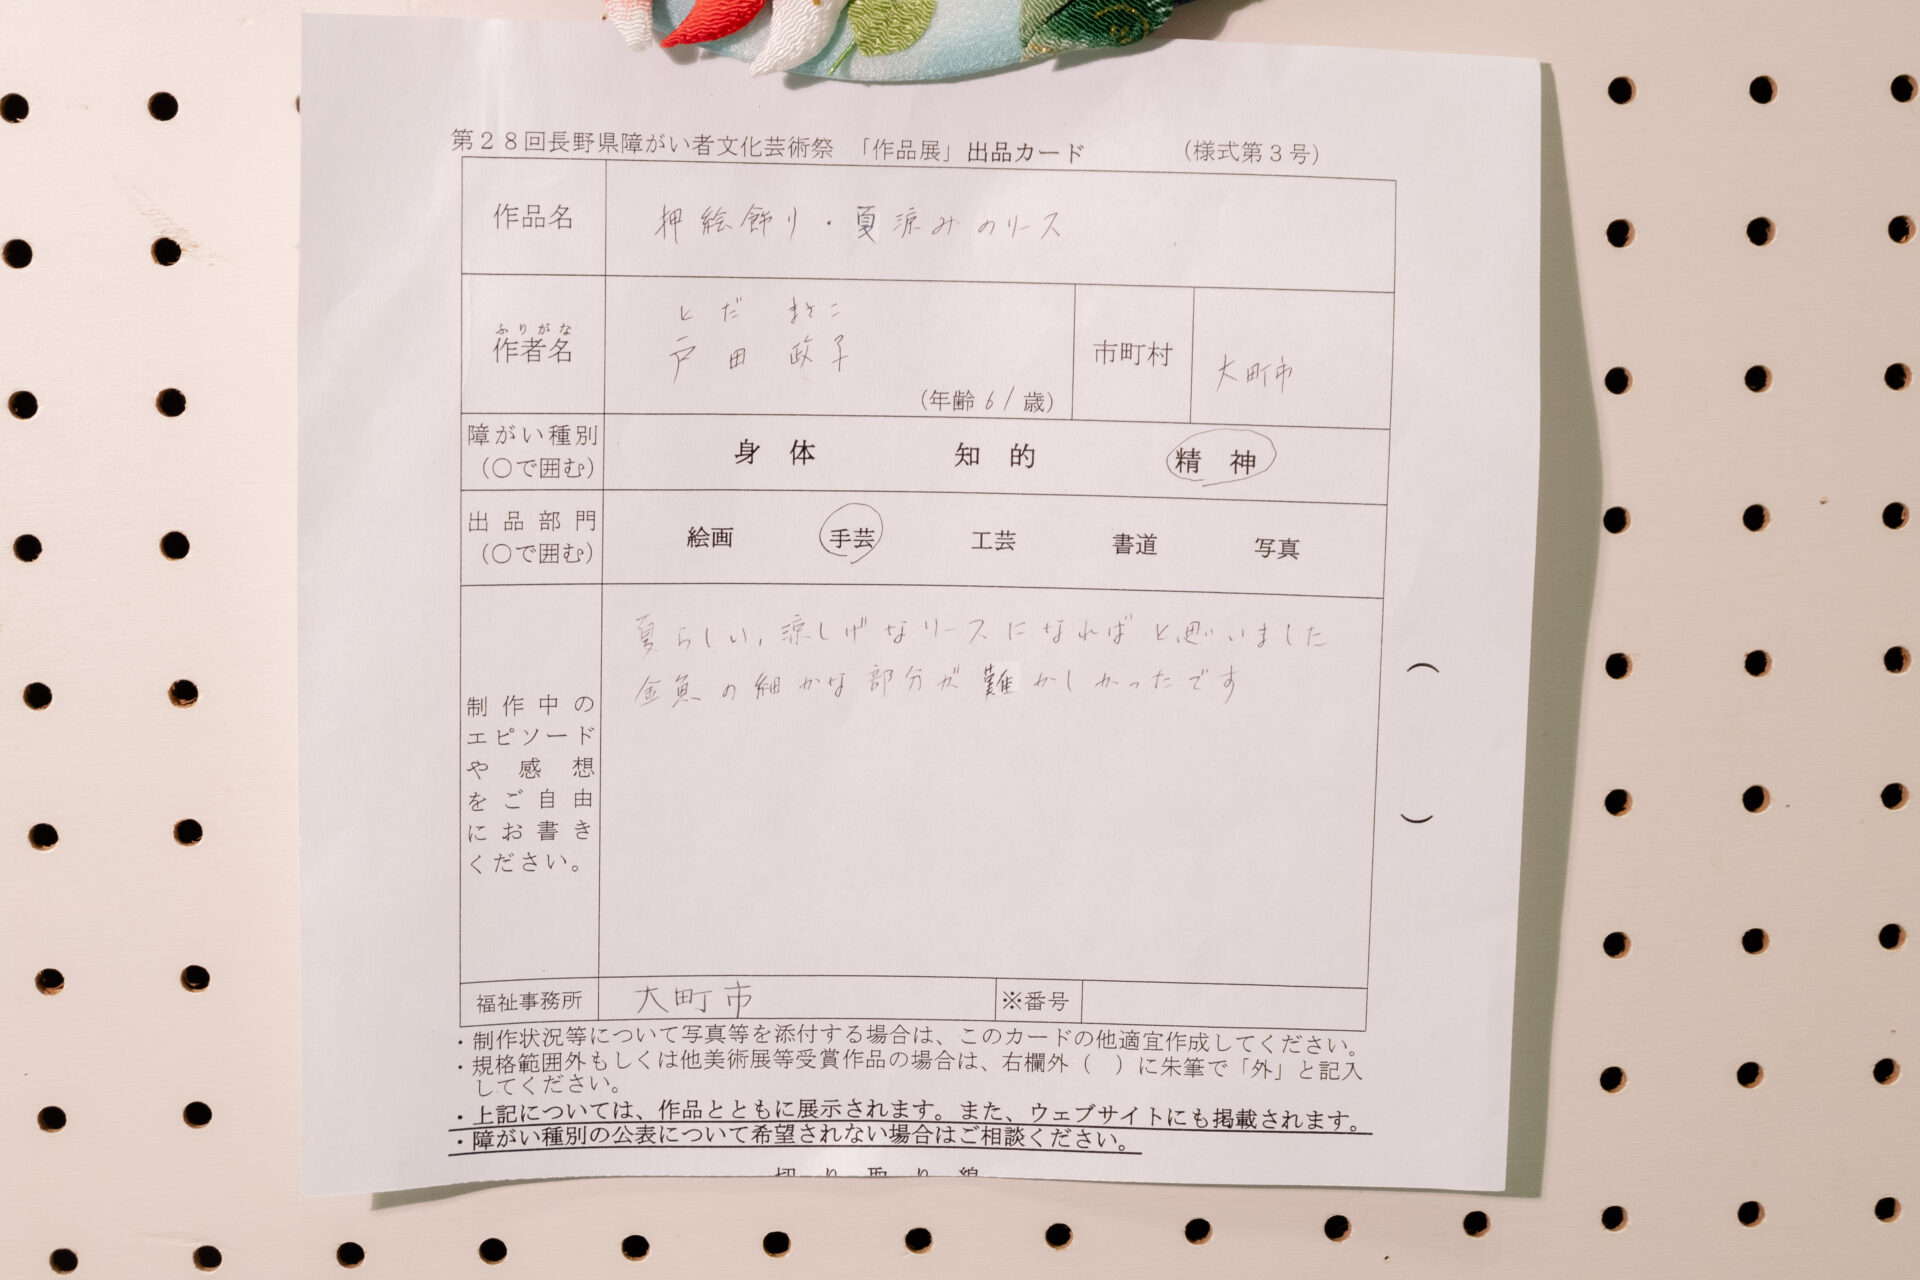 第２８回長野県障がい者文化芸術祭 「作品展」出品カード (様式第３号)
作品名
押絵飾り・夏涼みのリース
ふりがな
作者名
とだ まさこ
戸田 政子
(年齢 61 歳)
市町村
大町市
障がい種別
(〇で囲む)
身体 知的 精神
出品部門
(〇で囲む)
絵画 手芸 工芸 書道 写真
制作中の
エピソード
や感想
をご自由
にお書き
ください。
夏らしい、涼しげなリースになればと思いました
金魚の細かな部分が難かしかったです
( )
福祉事務所
大町市
※番号
・制作状況等について写真等を添付する場合は、このカードの他適宜作成してください。
・規格範囲外もしくは他美術展等受賞作品の場合は、右欄外（ ）に朱筆で「外」と記入
してください。
・上記については、作品とともに展示されます。また、ウェブサイトにも掲載されます。
・障がい種別の公表について希望されない場合はご相談ください。
切り取り線